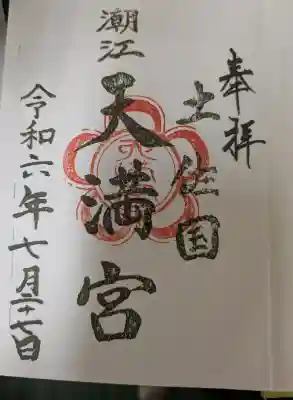 奉拝
土佐国
潮江
天満宮
令和六年七月二十七日